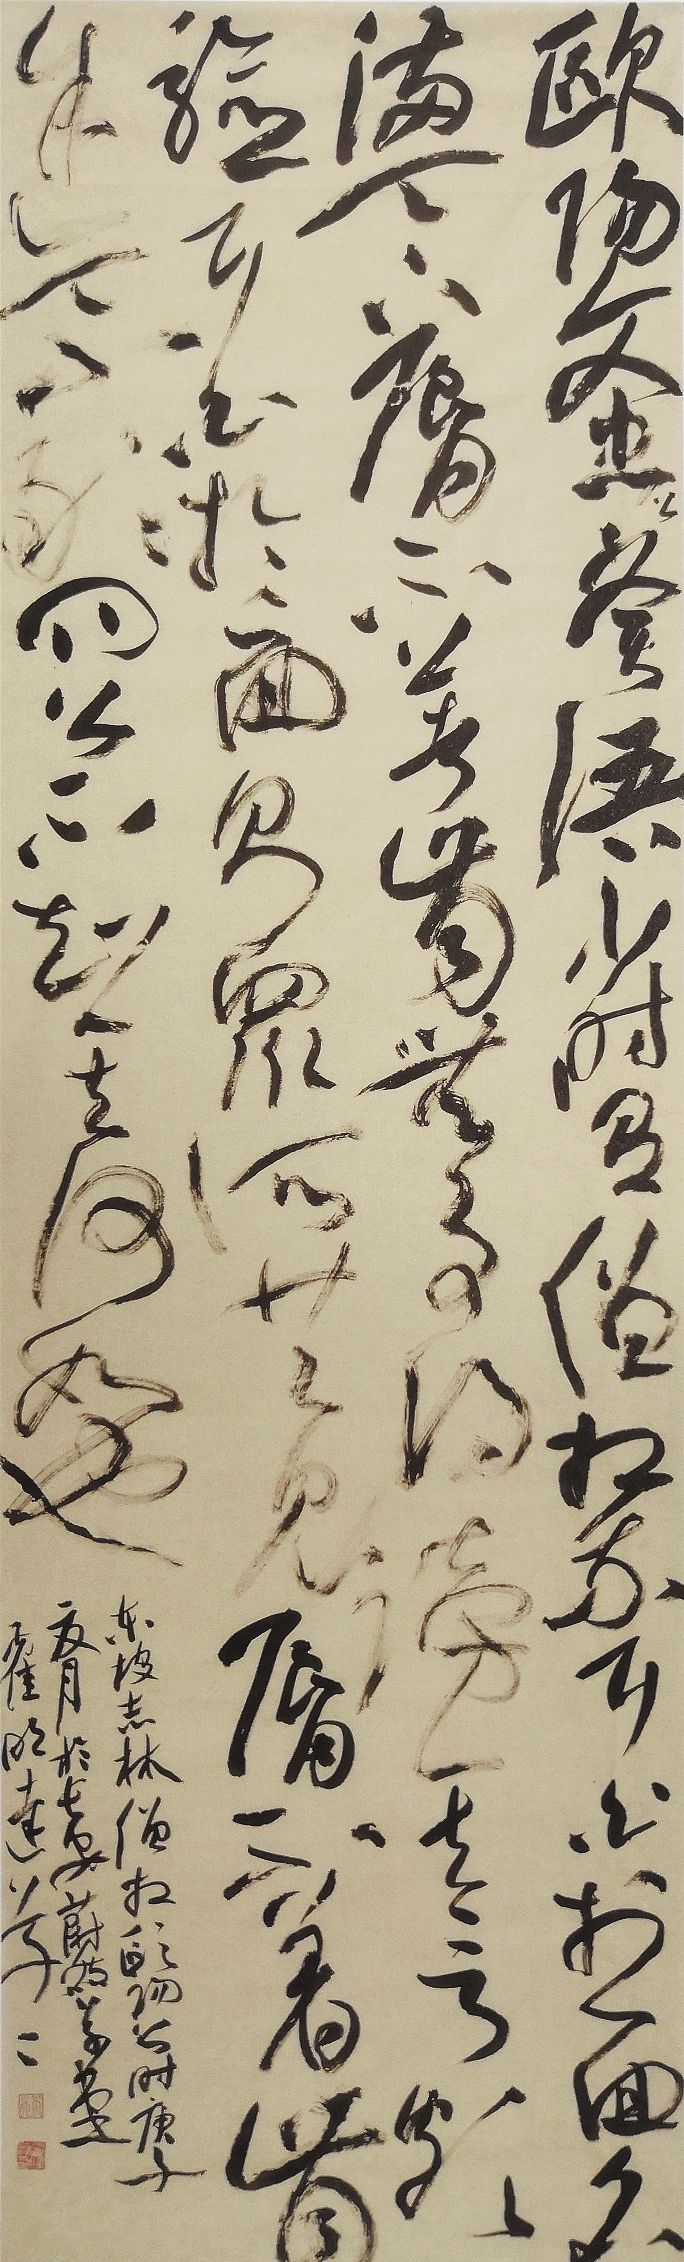 歐陽文忠公嘗語少時有僧相我耳白於面名
滿天下唇不著齒無事得謗其言頗
驗耳白於面則眾所共見唇不著齒
余亦不敢問公不知其何如也
東坡志林僧相歐陽公時庚子
夏月於長安蔚然草堂
霍明達草